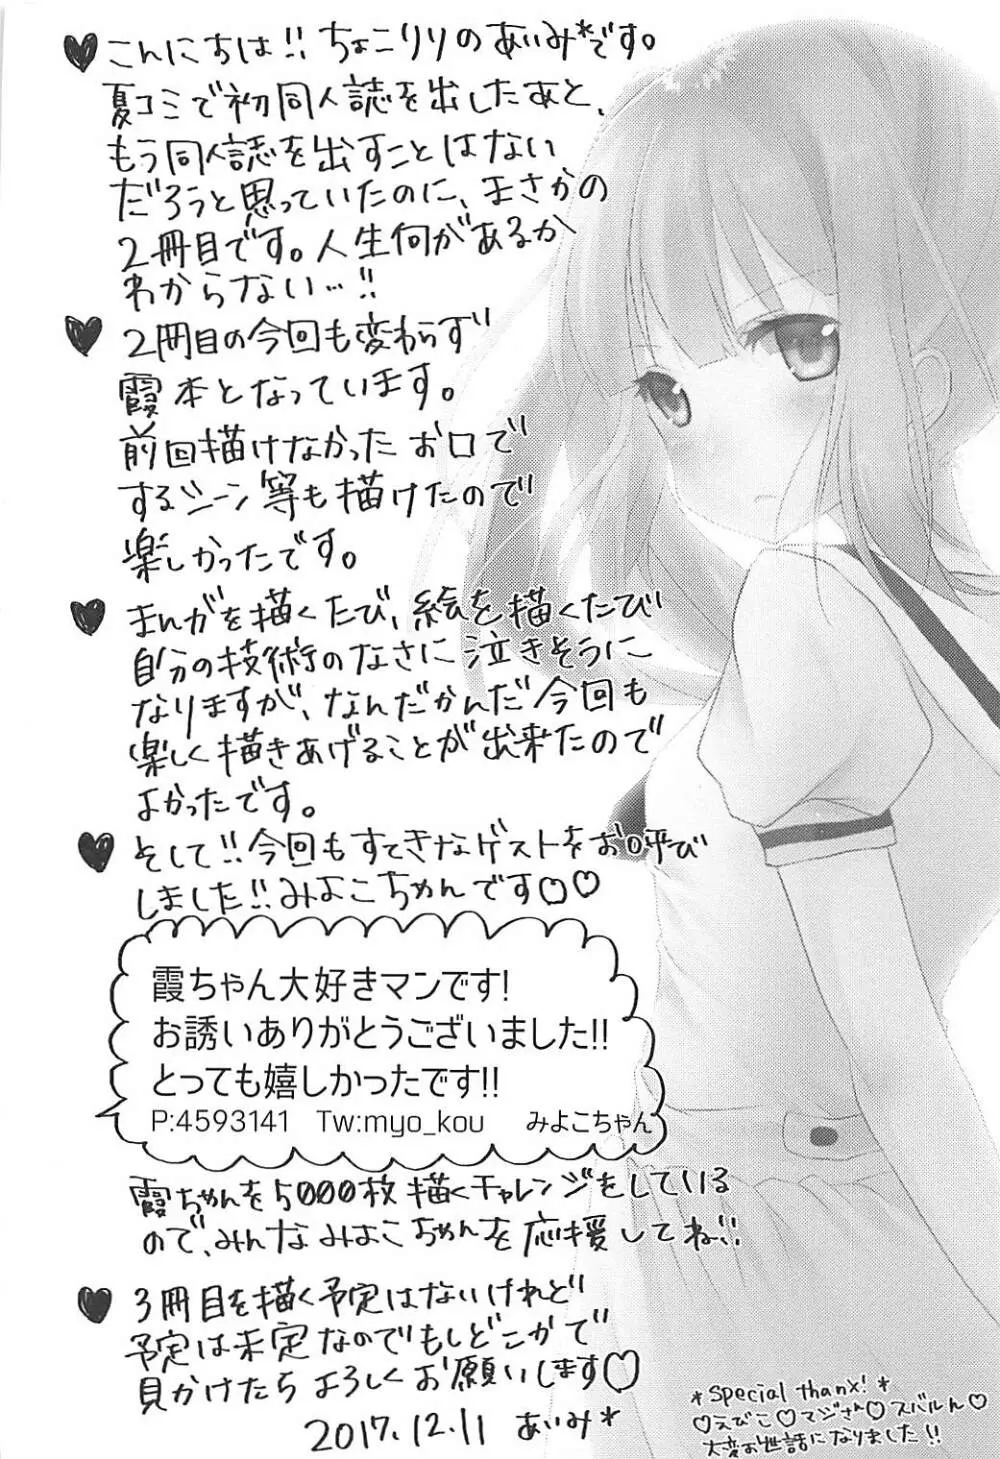 こんにちは!! ちょこりりのあいみ*です。
夏コミで初同人誌を出したあと、
もう同人誌を出すことはない
だろうと思っていたのに、まさかの
2冊目です。人生何があるか
わからない…!!
2冊目の今回も変わらず
霞本となっています。
前回描けなかったお口で
するシーン等も描けたので
楽しかったです。
まんがを描くたび、絵を描くたび
自分の技術のなさに泣きそうに
なりますが、なんだかんだ今回も
楽しく描きあげることが出来たので
よかったです。
そして!! 今回もすてきなゲストをお呼び
しました!! みよこちゃんです♡♡
霞ちゃん大好きマンです!
お誘いありがとうございました!!
とっても嬉しかったです!!
P:4593141 Tw:myo_kou みよこちゃん
霞ちゃんを5000枚描くチャレンジをしている
ので、みんなみよこちゃんを応援してね!!
3冊目を描く予定はないけれど
予定は未定なのでもしどこかで
見かけたらよろしくお願いします♡
2017.12.11 あいみ*
*Special thanx!*
♡えびこ♡マジさん♡スバルん♡
大変お世話になりました!!